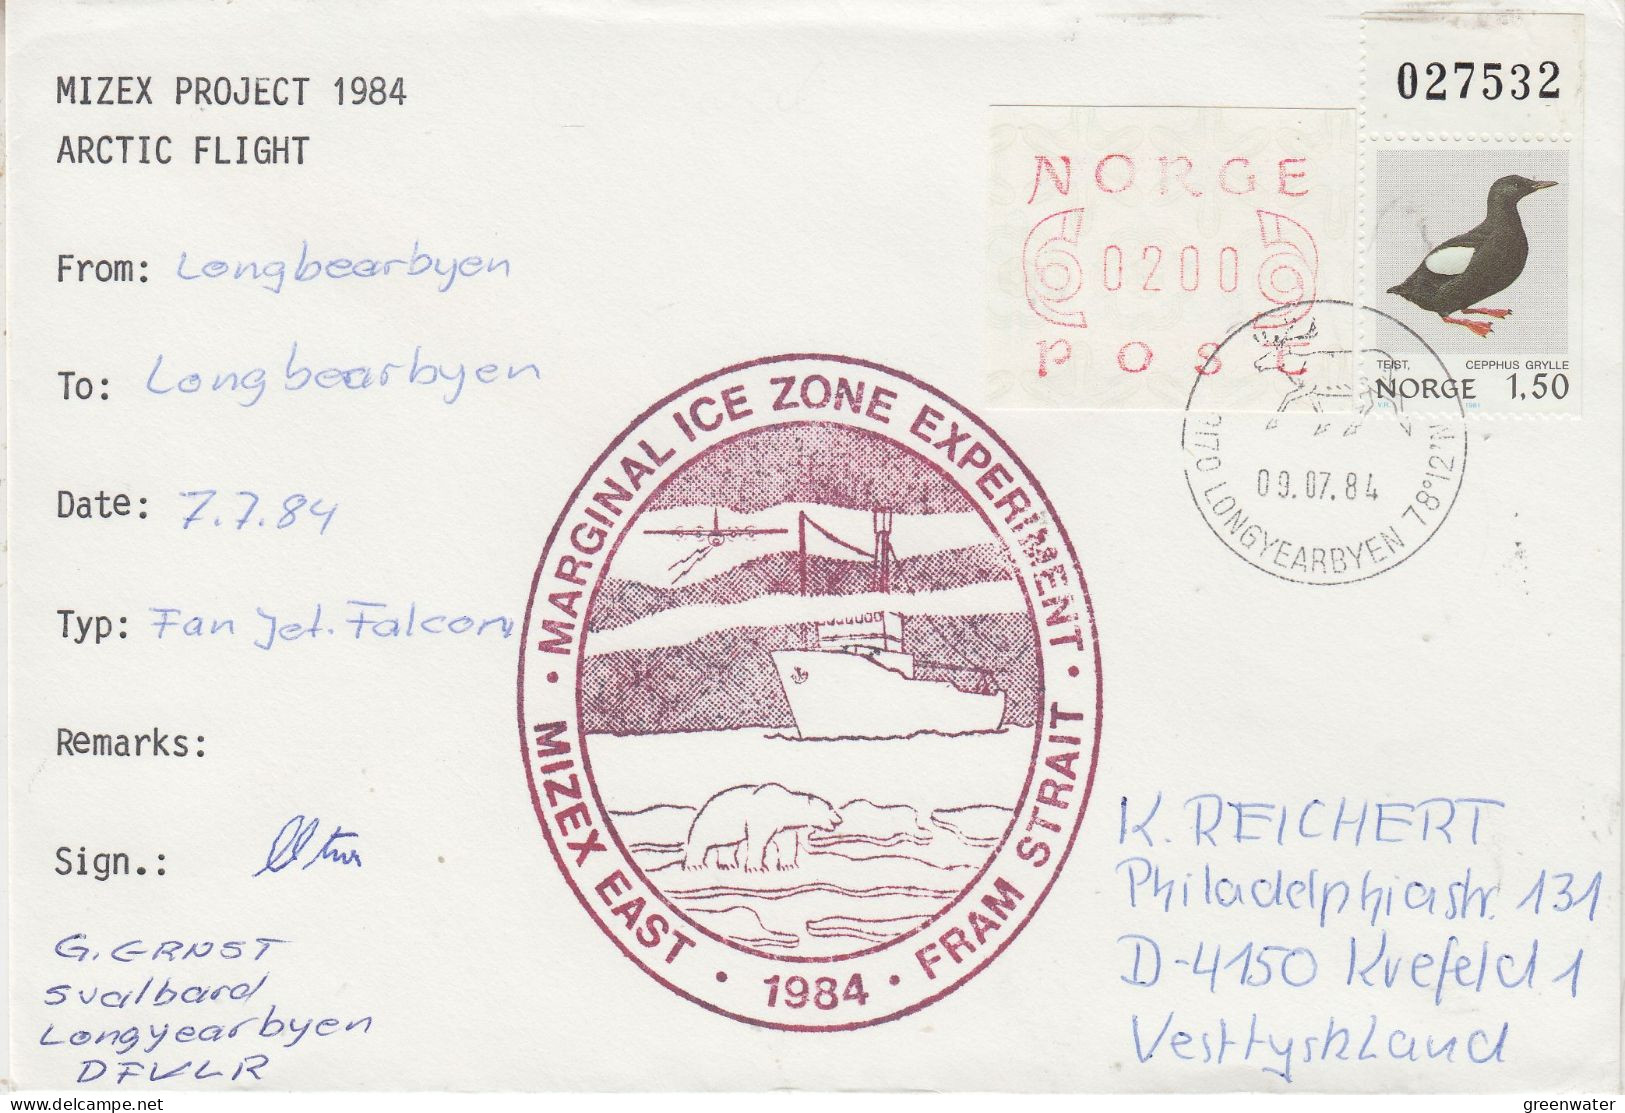 MIZEX PROJECT 1984
ARCTIC FLIGHT
From: Longbearbyen
To: Longbearbyen
Date: 7.7.84
Typ: Fan Jet. Falcon
Remarks:
Sign.:
G. ERNST
Svalbard
Longyearbyen
DFVLR
MARGINAL ICE ZONE EXPERIMENT
MIZEX EAST • 1984 • FRAM STRAIT
NORGE
0200
POST
027532
TEIST, CEPPHUS GRYLLE
NORGE 1,50
V.R. 1981
09.07.84
9170 LONGYEARBYEN 78°12'N
K. REICHERT
Philadelphiastr. 131
D-4150 Krefeld 1
Vesttyskland
greenwater